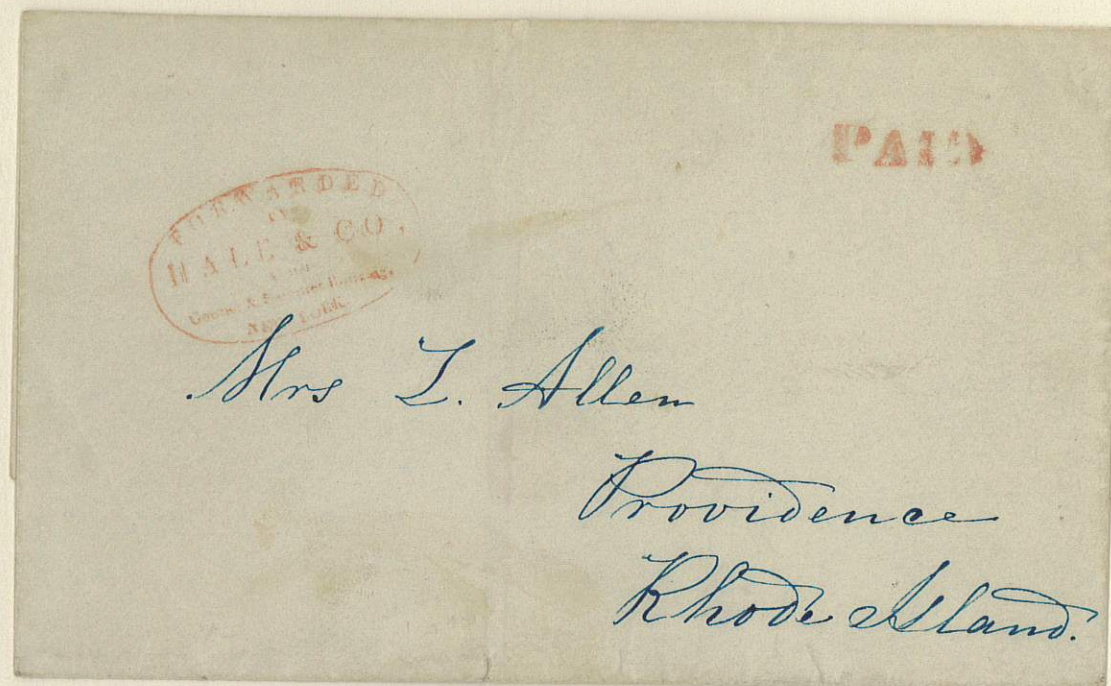 PAID
FORWARDED
BY
HALE & CO.
NEW YORK
Mrs L. Allen
Providence
Rhode Island.